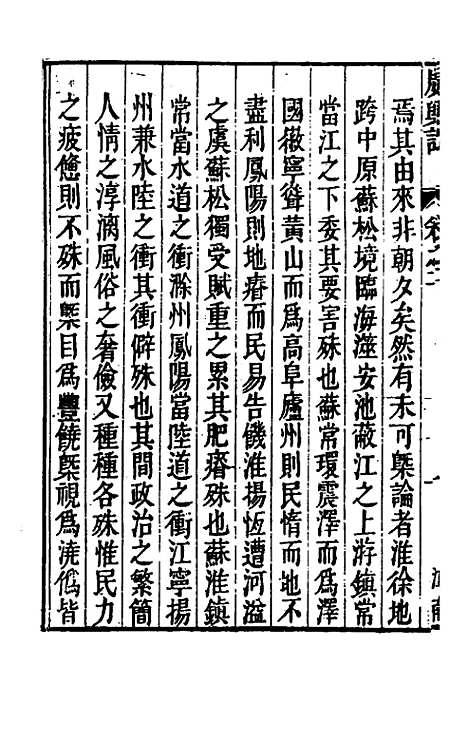 廣輿記
卷之二
一
江南
焉其由來非朝夕矣然有未可槩論者淮徐地
跨中原蘇松境臨海澨安池蔽江之上游鎮常
當江之下委其要害殊也蘇常環震澤而爲澤
國徽寧聳黃山而爲高阜廬州則民惰而地不
盡利鳳陽則地瘠而民易告饑淮揚恆遭河溢
之虞蘇松獨受賦重之累其肥瘠殊也蘇淮鎮
常當水道之衝滁州鳳陽當陸道之衝江寧揚
州兼水陸之衝其衝僻殊也其間政治之繁簡
人情之淳漓風俗之奢儉又種種各殊惟民力
之疲憊則不殊而槩目爲豐饒槩視爲澆僞皆